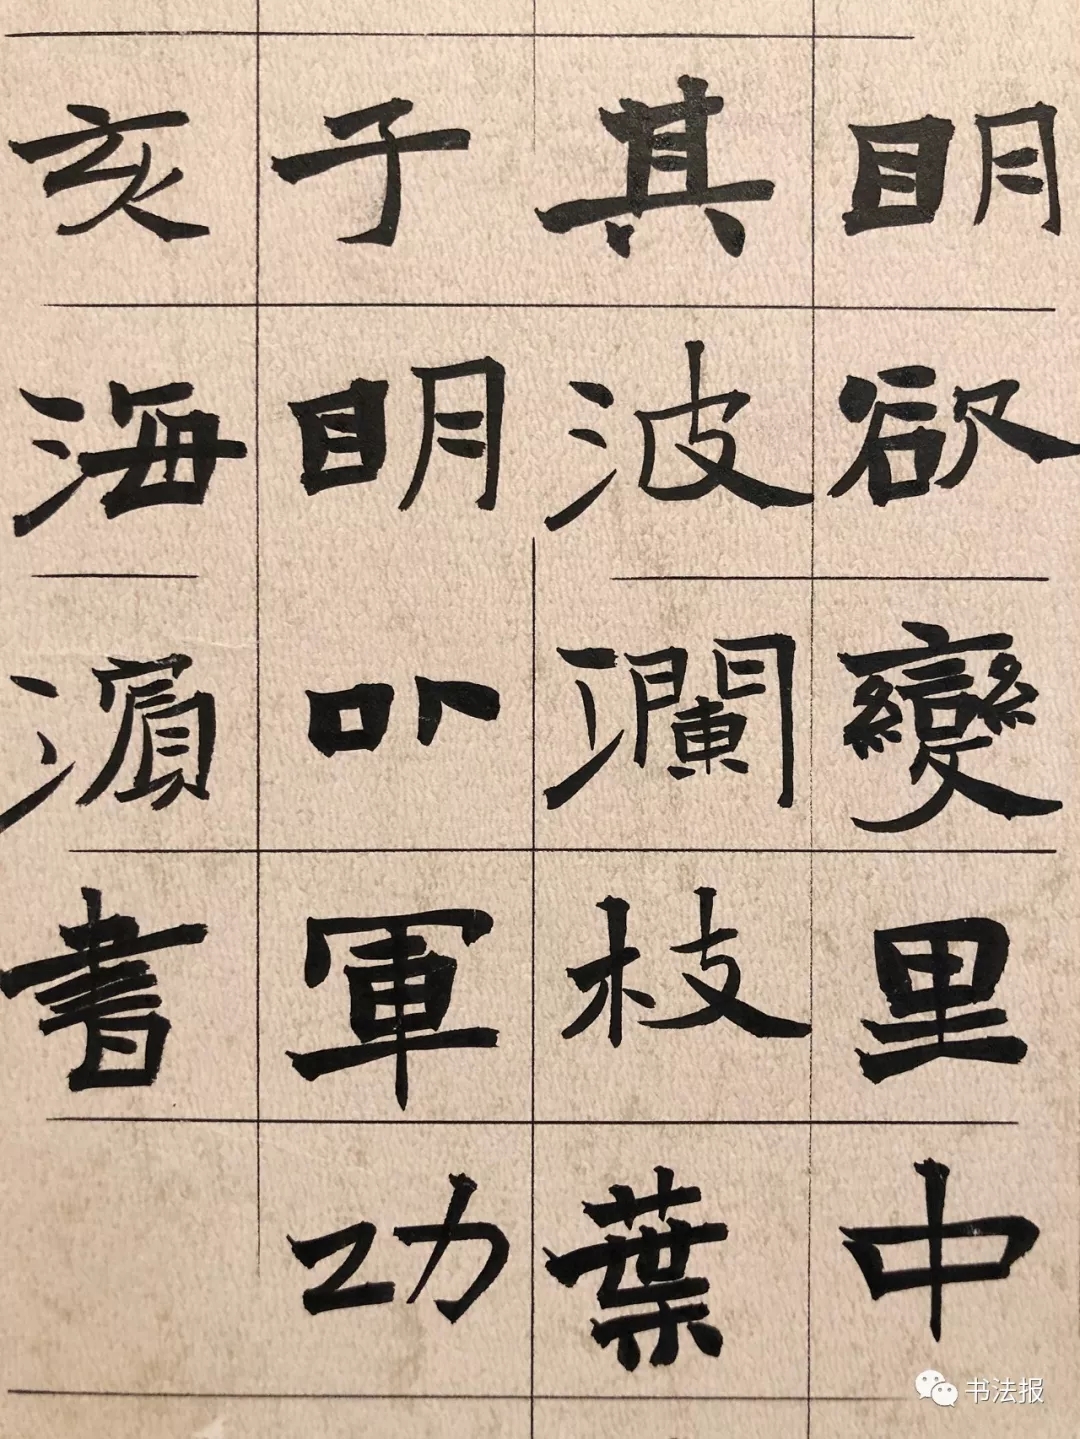 明欲變里中
其波瀾枝葉
子明以軍功
亥海濱書
书法报